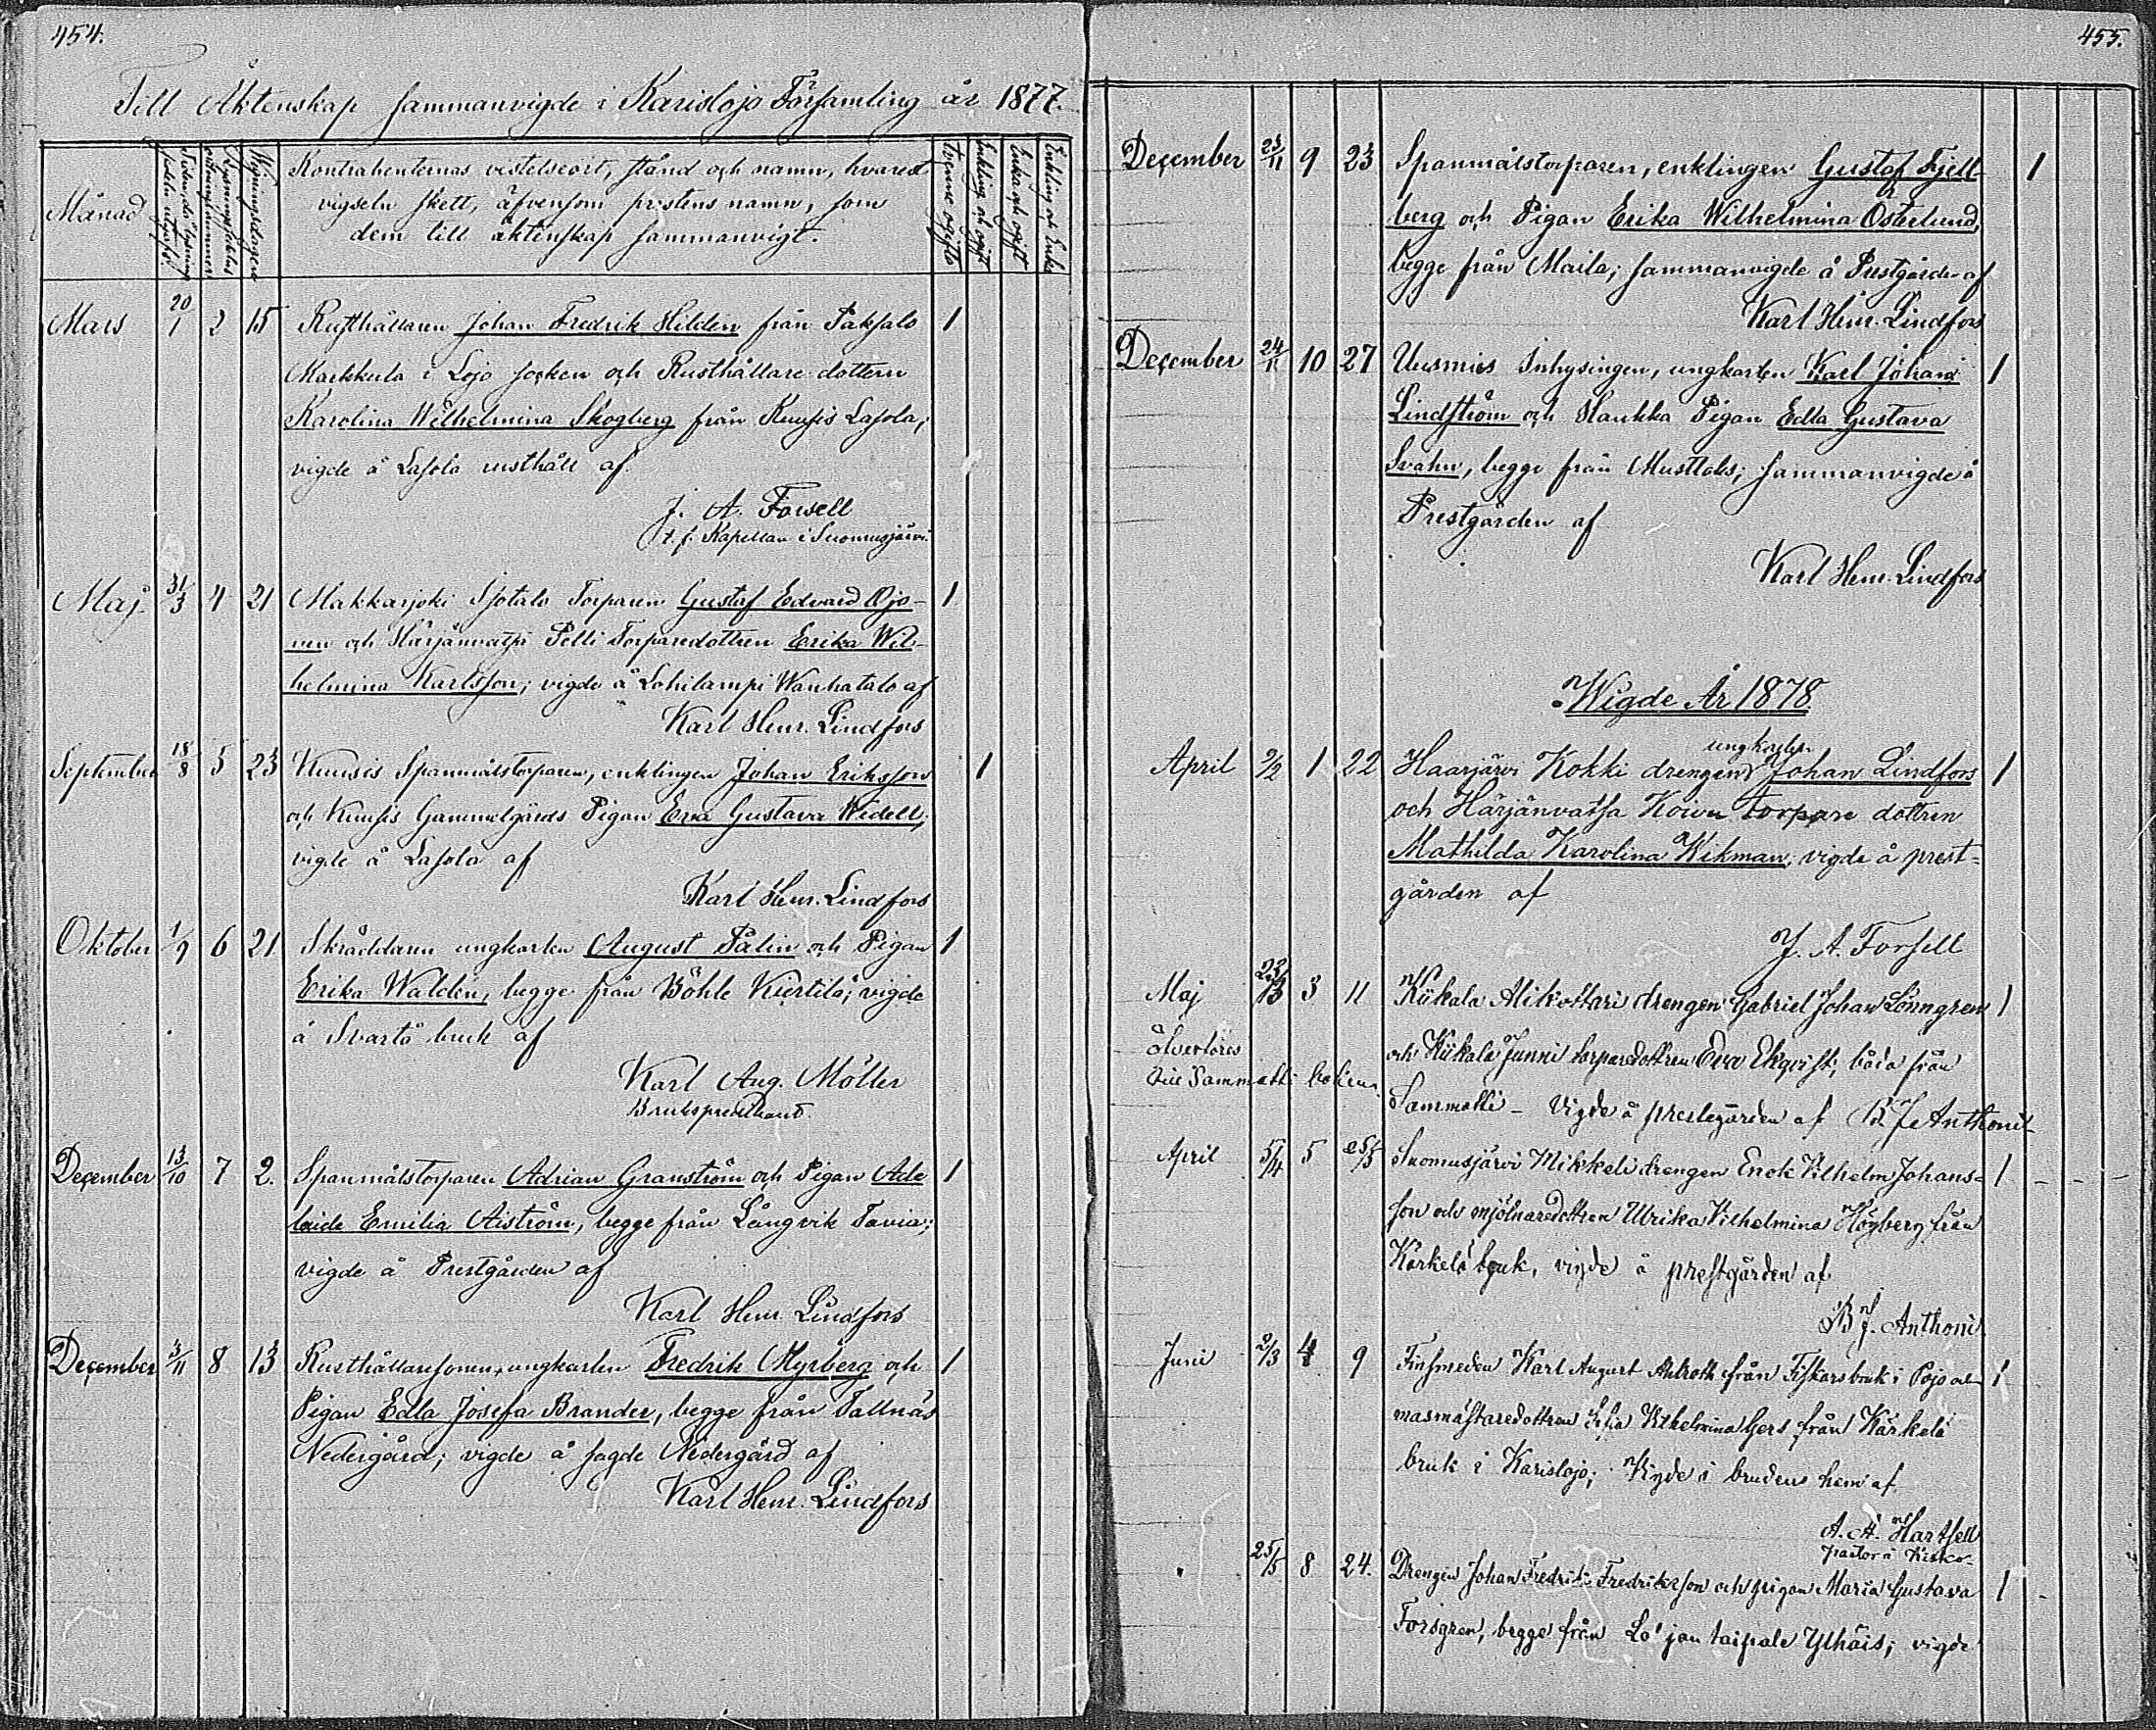 454.
Till Äktenskap sammanvigde i Karislojo Församling år 1877.
Månad
Kontrahenternas vistelseort, stånd och namn, hvarest
vigseln skett, äfvensom prestens namn, som
dem till äktenskap sammanvigt.
tvenne ogifta
Enkling och ogift
Enka och ogift
Enkling och Enka
Mars 20/1 2 15 Rusthållaren Johan Fredrik Hilden från Paksalo 1
Markkula i Lojo socken och Rusthållare dottern
Karolina Wilhelmina Skogberg från Kuusis Lasola;
vigde å Lasola rusthåll af
J. A. Forsell
t. f. Kapellan i Suomusjärvi.
Maj. 31/3 4 21 Makkarjoki Torparen Gustaf Edvard Ojo-
nen och Härjänvatsa Pelli Torparedottren Erika Wil-
helmina Karlsson; vigde å Lohilampi Wanhatalo af
Karl Henr. Lindfors
September 18/8 5 23 Kuusis Spanmålstorparen, enklingen Johan Eriksson 1
och Kuusis Gammelgårds Pigan Eva Gustava Widell;
vigde å Lasola af
Karl Henr. Lindfors
Oktober 1/9 6 21 Skräddaren ungkarlen August Pålin och Pigan 1
Erika Walden, begge från Böhle Kurtila; vigde
å Svartå bruk af
Karl Aug. Möller
Brukspredikant.
December 13/10 7 2. Spanmålstorparen Adrian Granström och Pigan Ade
laide Emilia Aiström, begge från Långvik Tavia; 1
vigde å Prestgården af
Karl Henr. Lindfors
December 3/11 8 13 Rusthållaresonen, ungkarlen Fredrik Myrberg och 1
Pigan Edla Josefa Brander, begge från Tallnäs
Nedergård; vigde å sagde Nedergård af
Karl Henr. Lindfors
455.
December 23/11 9 23 Spanmålstorparen, enklingen Gustaf Fjell- 1
berg och Pigan Erika Wilhelmina Österlund,
begge från Maila; sammanvigde å Prestgården af
Karl Henr. Lindfors
December 24/11 10 27 Uusmies Inhysingen, ungkarlen Karl Johan 1
Lindström och Haukka Pigan Edla Gustava
Svahn, begge från Mustlaks; sammanvigde å
Prestgården af
Karl Henr. Lindfors
Wigde År 1878.
ungkarlen
April 9/2 1 22 Haarjärvi Kokki drengen Johan Lindfors 1
och Härjänvatsa Koivu torpare dottren
Mathilda Karolina Wikman; vigde å prest-
gården af
J. A. Forsell
Maj 23/3 3 11 Kiikala Alikostari drengen Gabriel Johan Lönngren 1
och Kiikala Junni torparedottren Eva Ekqvist, båda från
Sammatti - Vigde å prestegården af B. F. Anthoni
April 5/4 5 25/5 Suomusjärvi Mikkeli drengen Enok Vilhelm Johans- 1
son och mjölnaredottren Ulrika Vilhelmina Högberg från
Kärkelä bruk, vigde å prestgården af
B. F. Anthoni
Juni 2/3 4 9 Finsmeden Karl August Ahlroth från Fiskars bruk i Pojo och 1
masmästaredottren Sofia Vilhelmina Gers från Kärkelä
bruk i Karislojo; Vigde i brudens hem af
A. H. Hartsell
pastor i Kisko-
" 25/5 8 24. Drengen Johan Fredrik Fredriksson och pigan Maria Gustava 1
Forsgren, begge från Lojantaipale Ylhäis; vigde